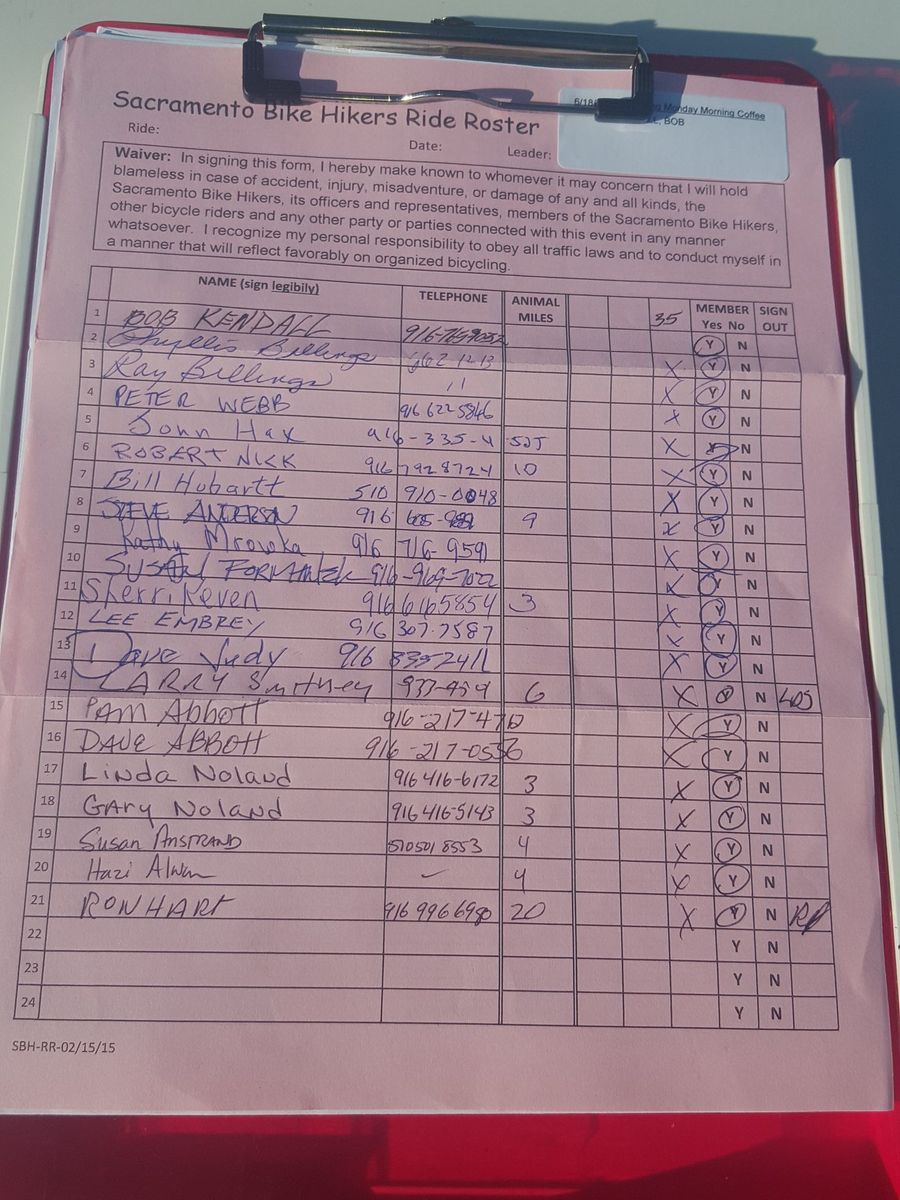 Sacramento Bike Hikers Ride Roster
Monday Morning Coffee
BOB
Ride: Date: Leader:
Waiver: In signing this form, I hereby make known to whomever it may concern that I will hold
blameless in case of accident, injury, misadventure, or damage of any and all kinds, the
Sacramento Bike Hikers, its officers and representatives, members of the Sacramento Bike Hikers,
other bicycle riders and any other party or parties connected with this event in any manner
whatsoever. I recognize my personal responsibility to obey all traffic laws and to conduct myself in
a manner that will reflect favorably on organized bicycling.
NAME (sign legibily) TELEPHONE ANIMAL MILES 35 MEMBER Yes No SIGN OUT
1 BOB KENDALL Y N
2 Phyllis Billings 662 1213 X Y N
3 Ray Billings 11 X Y N
4 PETER WEBB 916 622 5846 X Y N
5 John Hax 916-335-4525 X Y N
6 ROBERT NICK 916 792 8724 10 X Y N
7 Bill Hobartt 510 910-0048 X Y N
8 STEVE ANDERSON 916 9 X Y N
9 Kathy Mrowka 916 716-9591 X Y N
10 SUSAN FORMANEK 916-969-7022 X Y N
11 Sherri Keven 916 616 5854 3 X Y N
12 LEE EMBREY 916 307.7587 X Y N
13 Dave Judy 916 835 2411 X Y N
14 LARRY 933-454 6 X Y N LDS
15 PAM Abbott 916-217-4712 X Y N
16 DAVE ABBOTT 916-217-0536 X Y N
17 Linda Noland 916 416-6172 3 X Y N
18 GARY Noland 916 416-5143 3 X Y N
19 Susan ANSTRAND 510 501 8553 4 X Y N
20 Hazi Alwan 4 X Y N
21 RON HART 916 996 6980 20 X Y N RH
22 Y N
23 Y N
24 Y N
SBH-RR-02/15/15